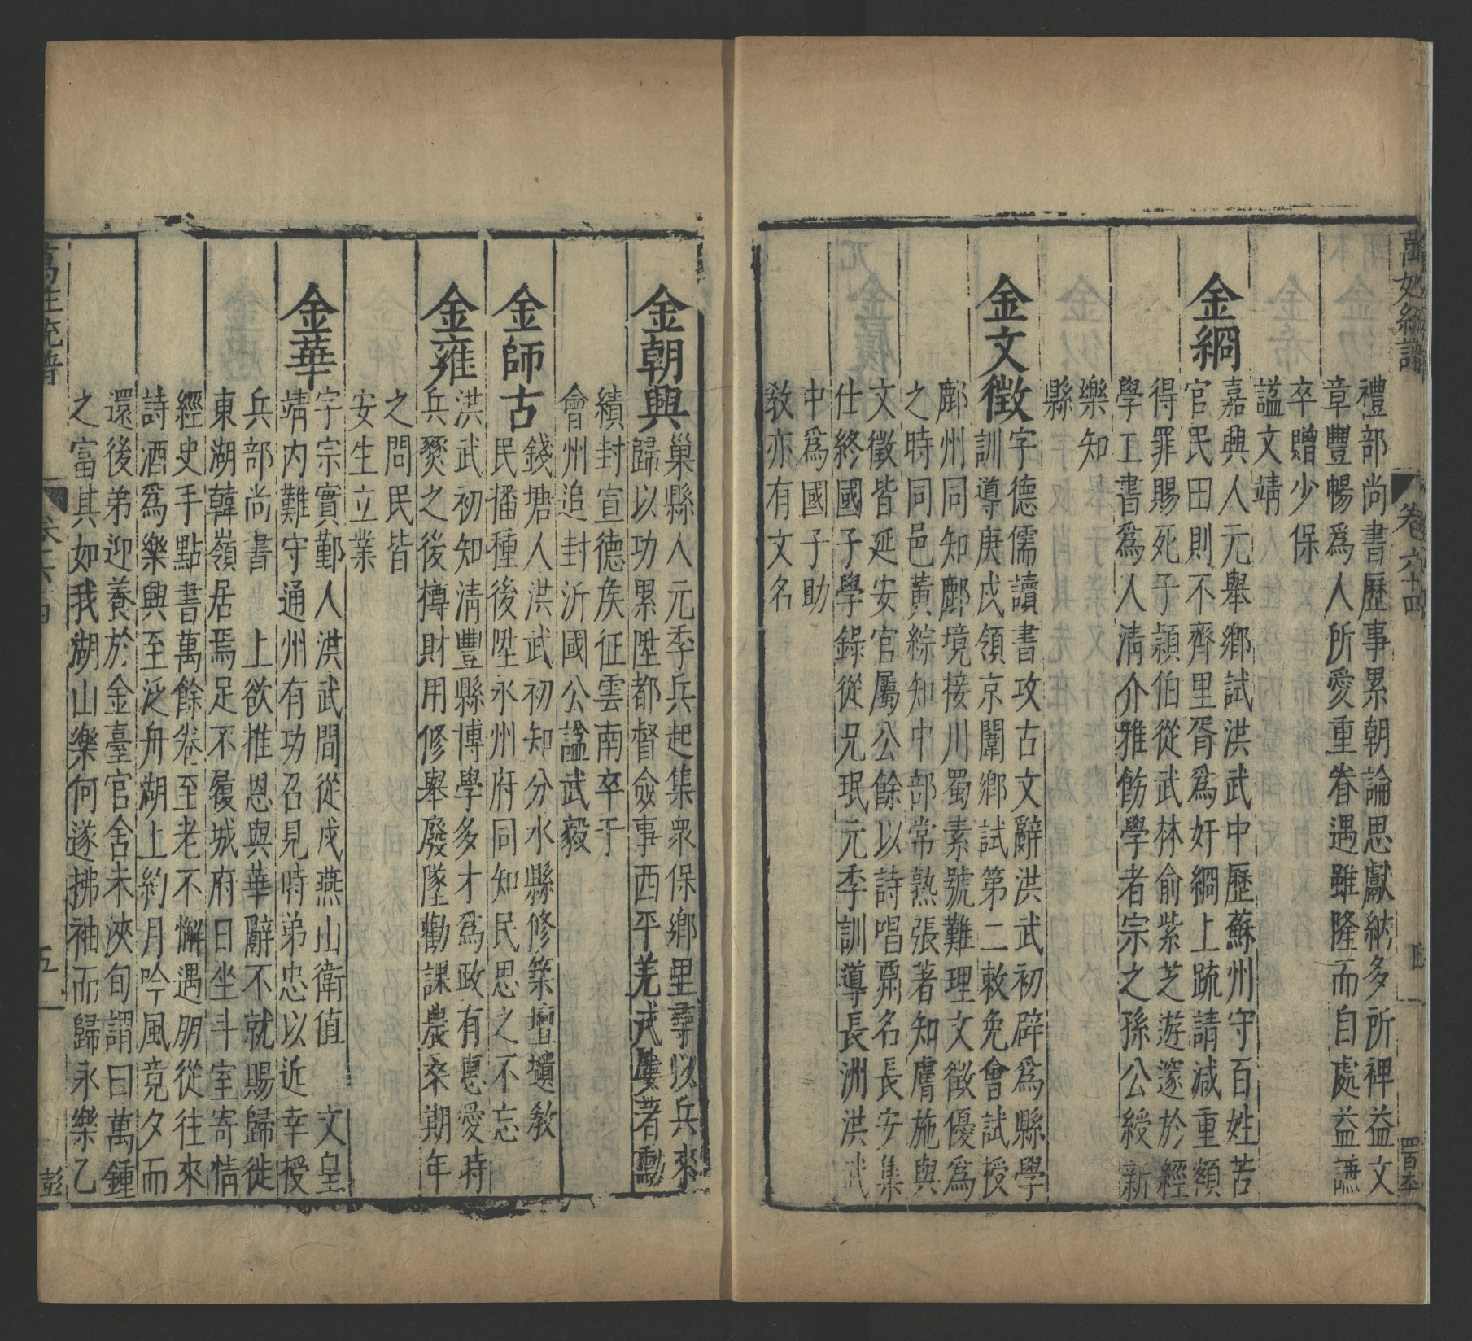 萬姓統譜
卷六十四
禮部尚書歷事累朝論思獻納多所裨益文
章豐暢為人所愛重眷遇雖隆而自處益謙
卒贈少保
諡文靖
金綱
嘉興人元舉鄉試洪武中歷蘇州守百姓苦
官民田則不齊里胥為奸綱上疏請減重額
得罪賜死于潁伯從武林俞紫芝遊邃於經
學工書為人清介雅飭學者宗之孫公綬新
樂知
縣
金文徵
字德儒讀書攻古文辭洪武初辟為縣學
訓導庚戌領京闈鄉試第二敕免會試授
鄜州同知鄜境接川蜀素號難理文徵優為
之時同邑黃綜知中部常熟張著知膚施與
文徵皆延安官屬公餘以詩唱鬲名長安集
仕終國子學錄從兄珉元季訓導長洲洪武
中為國子助
教亦有文名
金朝興
巢縣人元季兵起集衆保鄉里尋以兵來
歸以功累陞都督僉事西平羌戎屢著勳
績封宣德侯征雲南卒于
會州追封沂國公諡武毅
金師古
錢塘人洪武初知分水縣修築壇壝教
民播種後陞永州府同知民思之不忘
金雍
洪武初知清豐縣博學多才為政有惠愛時
兵燹之後樽財用修舉廢墜勸課農桑期年
之間民皆
安生立業
金華
字宗實鄞人洪武間從戍燕山衛值　文皇
靖內難守通州有功召見時弟忠以近幸授
兵部尚書　上欲推恩與華辭不就賜歸徙
東湖韓嶺居焉足不履城府日坐斗室寄情
經史手點書萬餘卷至老不懈遇朋從往來
詩酒為樂興至泛舟湖上約月吟風竟夕而
還後弟迎養於金臺官舍未浹旬謂曰萬鍾
之富其如我湖山樂何遂拂袖而歸永樂乙
萬姓統譜
卷六十四
五
彭